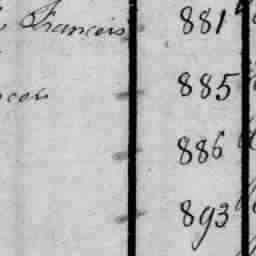 Francois 881
885
886
893